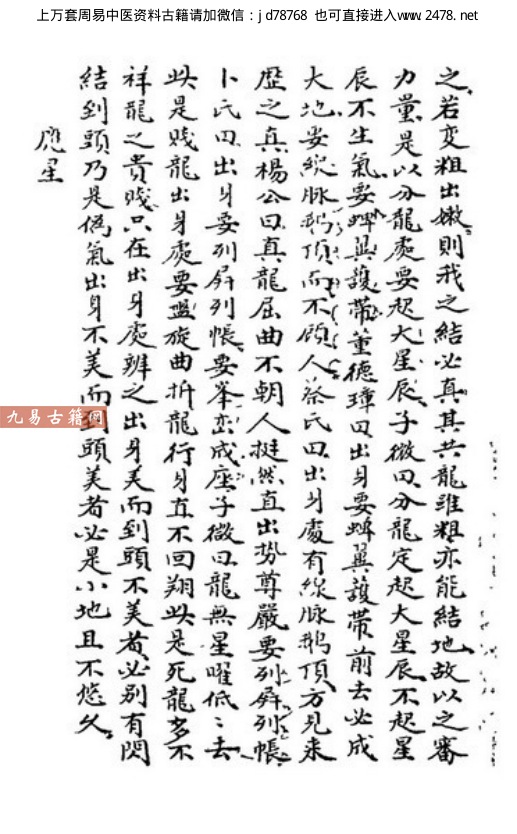 上万套周易中医资料古籍请加微信：jd78768 也可直接进入www.2478.net
之若变粗出嫩則我之結必真其共龍雖粗亦能結地故以之審
力量是以分龍處要起大星辰子微曰分龍定起大星辰不起星
辰不生氣要蟬翼護帶董德璋曰出身要蟬翼護帶前去必成
大地要線脉鵝頂而不顧人蔡氏曰出身處有線脉鵝頂方見来
歷之真楊公曰真龍屈曲不朝人挺然直出势尊嚴要列屏列帳
卜氏曰出身要列屏列帳要峯巒成座子微曰龍無星曜低〻去
此是賤龍出身處要盤旋曲折龍行身直不回翔此是死龍多不
祥龍之貴賤只在出身處辨之出身美而到頭不美者必别有閃
結到頭乃是偽氣出身不美而到頭美者必是小地且不悠久
應星
九易古籍网